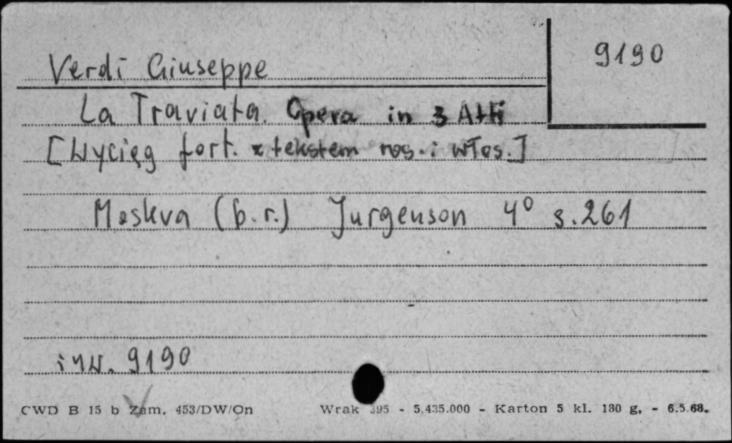 9190
Verdi Giuseppe
La Traviata. Opera in 3 Atti
[Wyciąg fort. z tekstem ros. i włos.]
Moskva (b.r.) Jurgenson 4° s. 261
inw. 9190
CWD B 15 b Zam. 453/DW/On Wrak 395 - 5.435.000 - Karton 5 kl. 180 g. - 6.5.68.